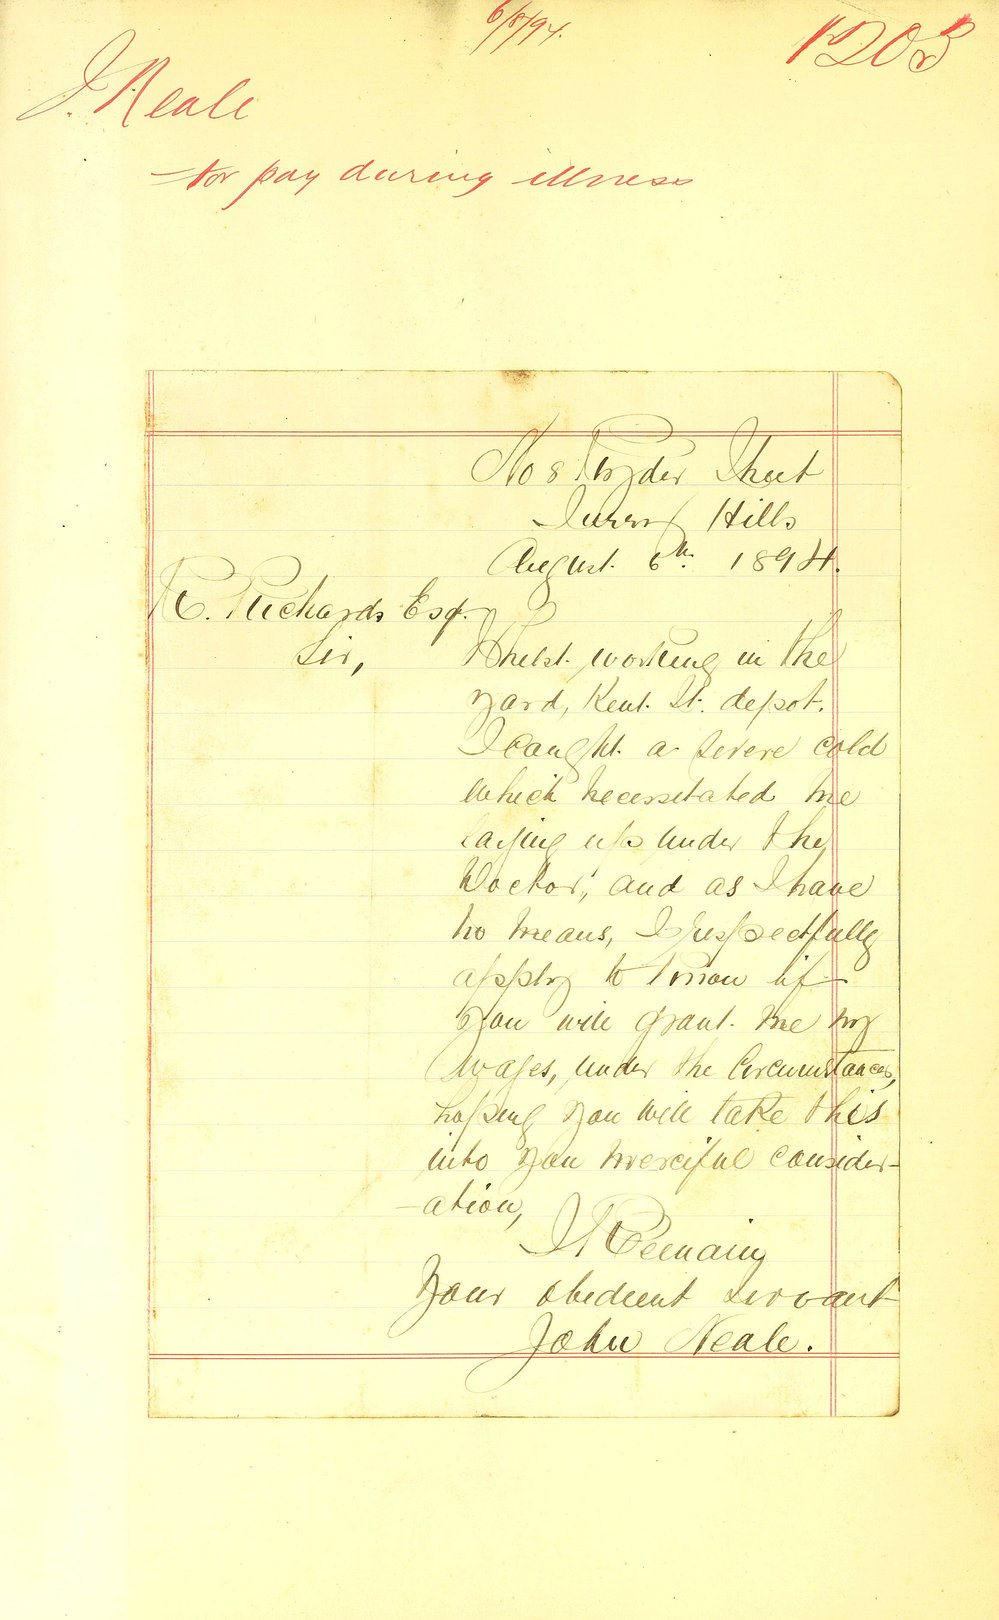 6/8/94.
1203
J. Neale
for pay during illness
No 8 Ryder Street
Surry Hills
August. 6th. 1894.
R. Richards Esq.
Sir,
Whilst working in the
yard, Kent. St. depot.
I caught. a severe cold
which necessitated me
laying up under the
Doctor, and as I have
no means, I respectfully
apply to know if
you will grant. me my
wages, under the Circumstances,
hoping you will take this
into you merciful consider-
-ation,
I Remain
Your obedient servant
John Neale.